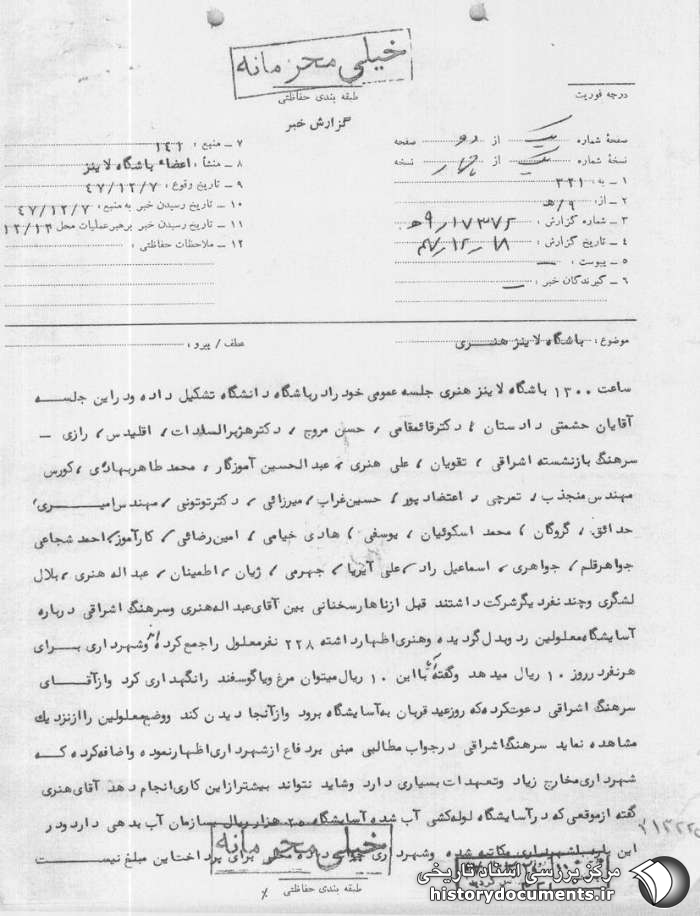 خیلی محرمانه
طبقه بندی حفاظتی
درجه فوریت
گزارش خبر
صفحهٔ شماره یک از دو صفحه
نسخهٔ شماره یک از چهار نسخه
۱ ـ به : ۳۲۱
۲ ـ از : ۹/هـ
۳ ـ شماره گزارش : ۹/۱۷۳۷۶ هـ
۴ ـ تاریخ گزارش : ۴۷/۱۲/۱۸
۵ ـ پیوست : ـ
۶ ـ گیرندگان خبر : ـ
۷ ـ منبع : ۱۴۲
۸ ـ منشأ : اعضاء باشگاه لاینز
۹ ـ تاریخ وقوع : ۴۷/۱۲/۷
۱۰ ـ تاریخ رسیدن خبر به منبع : ۴۷/۱۲/۷
۱۱ ـ تاریخ رسیدن خبر برهبر عملیات محل ۱۲/۱۴
۱۲ ـ ملاحظات حفاظتی :
موضوع : باشگاه لاینز هنری
عطف / پیرو :
ساعت ۱۳۰۰ باشگاه لاینز هنری جلسه عمومی خود را در باشگاه دانشگاه تشکیل داده و در این جلسه
آقایان حشمتی دادستان ، دکتر قائممقامی ، حسن مروج ، دکتر هژبرالسادات ، اقلیدس ، رازی ـ
سرهنگ بازنشسته اشراقی ، تقویان ، علی هنری ، عبدالحسین آموزگار ، محمد طاهر بهادری ، کورس
مهندس منجذب ، تعرچی ، اعتضادپور ، حسین غراب ، میرزائی ، دکتر توتونی ، مهندس امیری ،
حدائق ، گروگان ، محمد اسکوئیان ، یوسفی ، هادی خیامی ، امین رضائی ، کارآموز ، احمد شجاعی
جواهر قلم ، جواهری ، اسماعیل راد ، علی آیریا ، جهرمی ، ژیان ، اطمینان ، عبداله هنری ، بلال
لشگری و چند نفر دیگر شرکت داشتند قبل از ناهار سخنانی بین آقای عبداله هنری و سرهنگ اشراقی درباره
آسایشگاه معلولین رد و بدل گردیده و هنری اظهار داشته ۲۲۸ نفر معلول را جمع کرده ام و شهرداری برای
هر نفر در روز ۱۰ ریال میدهد و گفته که آیا با این ۱۰ ریال میتوان مرغ و یا گوسفند را نگهداری کرد و از آقای
سرهنگ اشراقی دعوت کرده که روز عید قربان به آسایشگاه برود و از آنجا دیدن کند و وضع معلولین را از نزدیک
مشاهده نماید سرهنگ اشراقی در جواب مطالبی مبنی بر دفاع از شهرداری اظهار نموده و اضافه کرده که
شهرداری مخارج زیاد و تعهدات بسیاری دارد و شاید نتواند بیشتر از این کاری انجام دهد آقای هنری
گفته از موقعی که در آسایشگاه لوله کشی آب شده آسایشگاه ۲۵ هزار ریال بسازمان آب بدهی دارد و در
این باره با شهرداری مکاتبه شده و شهرداری جواب داده محلی برای پرداخت این مبلغ نیست
خیلی محرمانه
طبقه بندی حفاظتی
مرکز بررسی اسناد تاریخی
historydocuments.ir